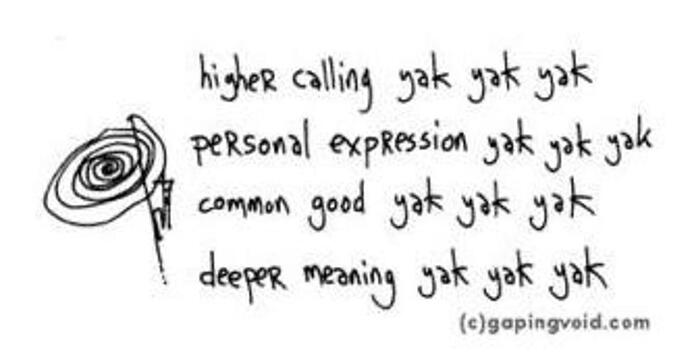 higher calling yak yak yak
personal expression yak yak yak
common good yak yak yak
deeper meaning yak yak yak
(c)gapingvoid.com